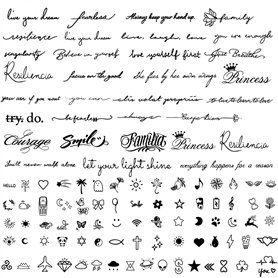 live your dream fearless Always keep your head up. family
resilience live your dream live, laugh, love you are enough
singularity Believe in yourself love yourself first Just Breathe
Resiliencia focus on the good She flies by her own wings Princess
your use if you want este salat
try. do. be fearless always
Courage Smile Familia Princess Resiliencia
You'll never walk alone let your light shine everything happens for a reason
HELLO